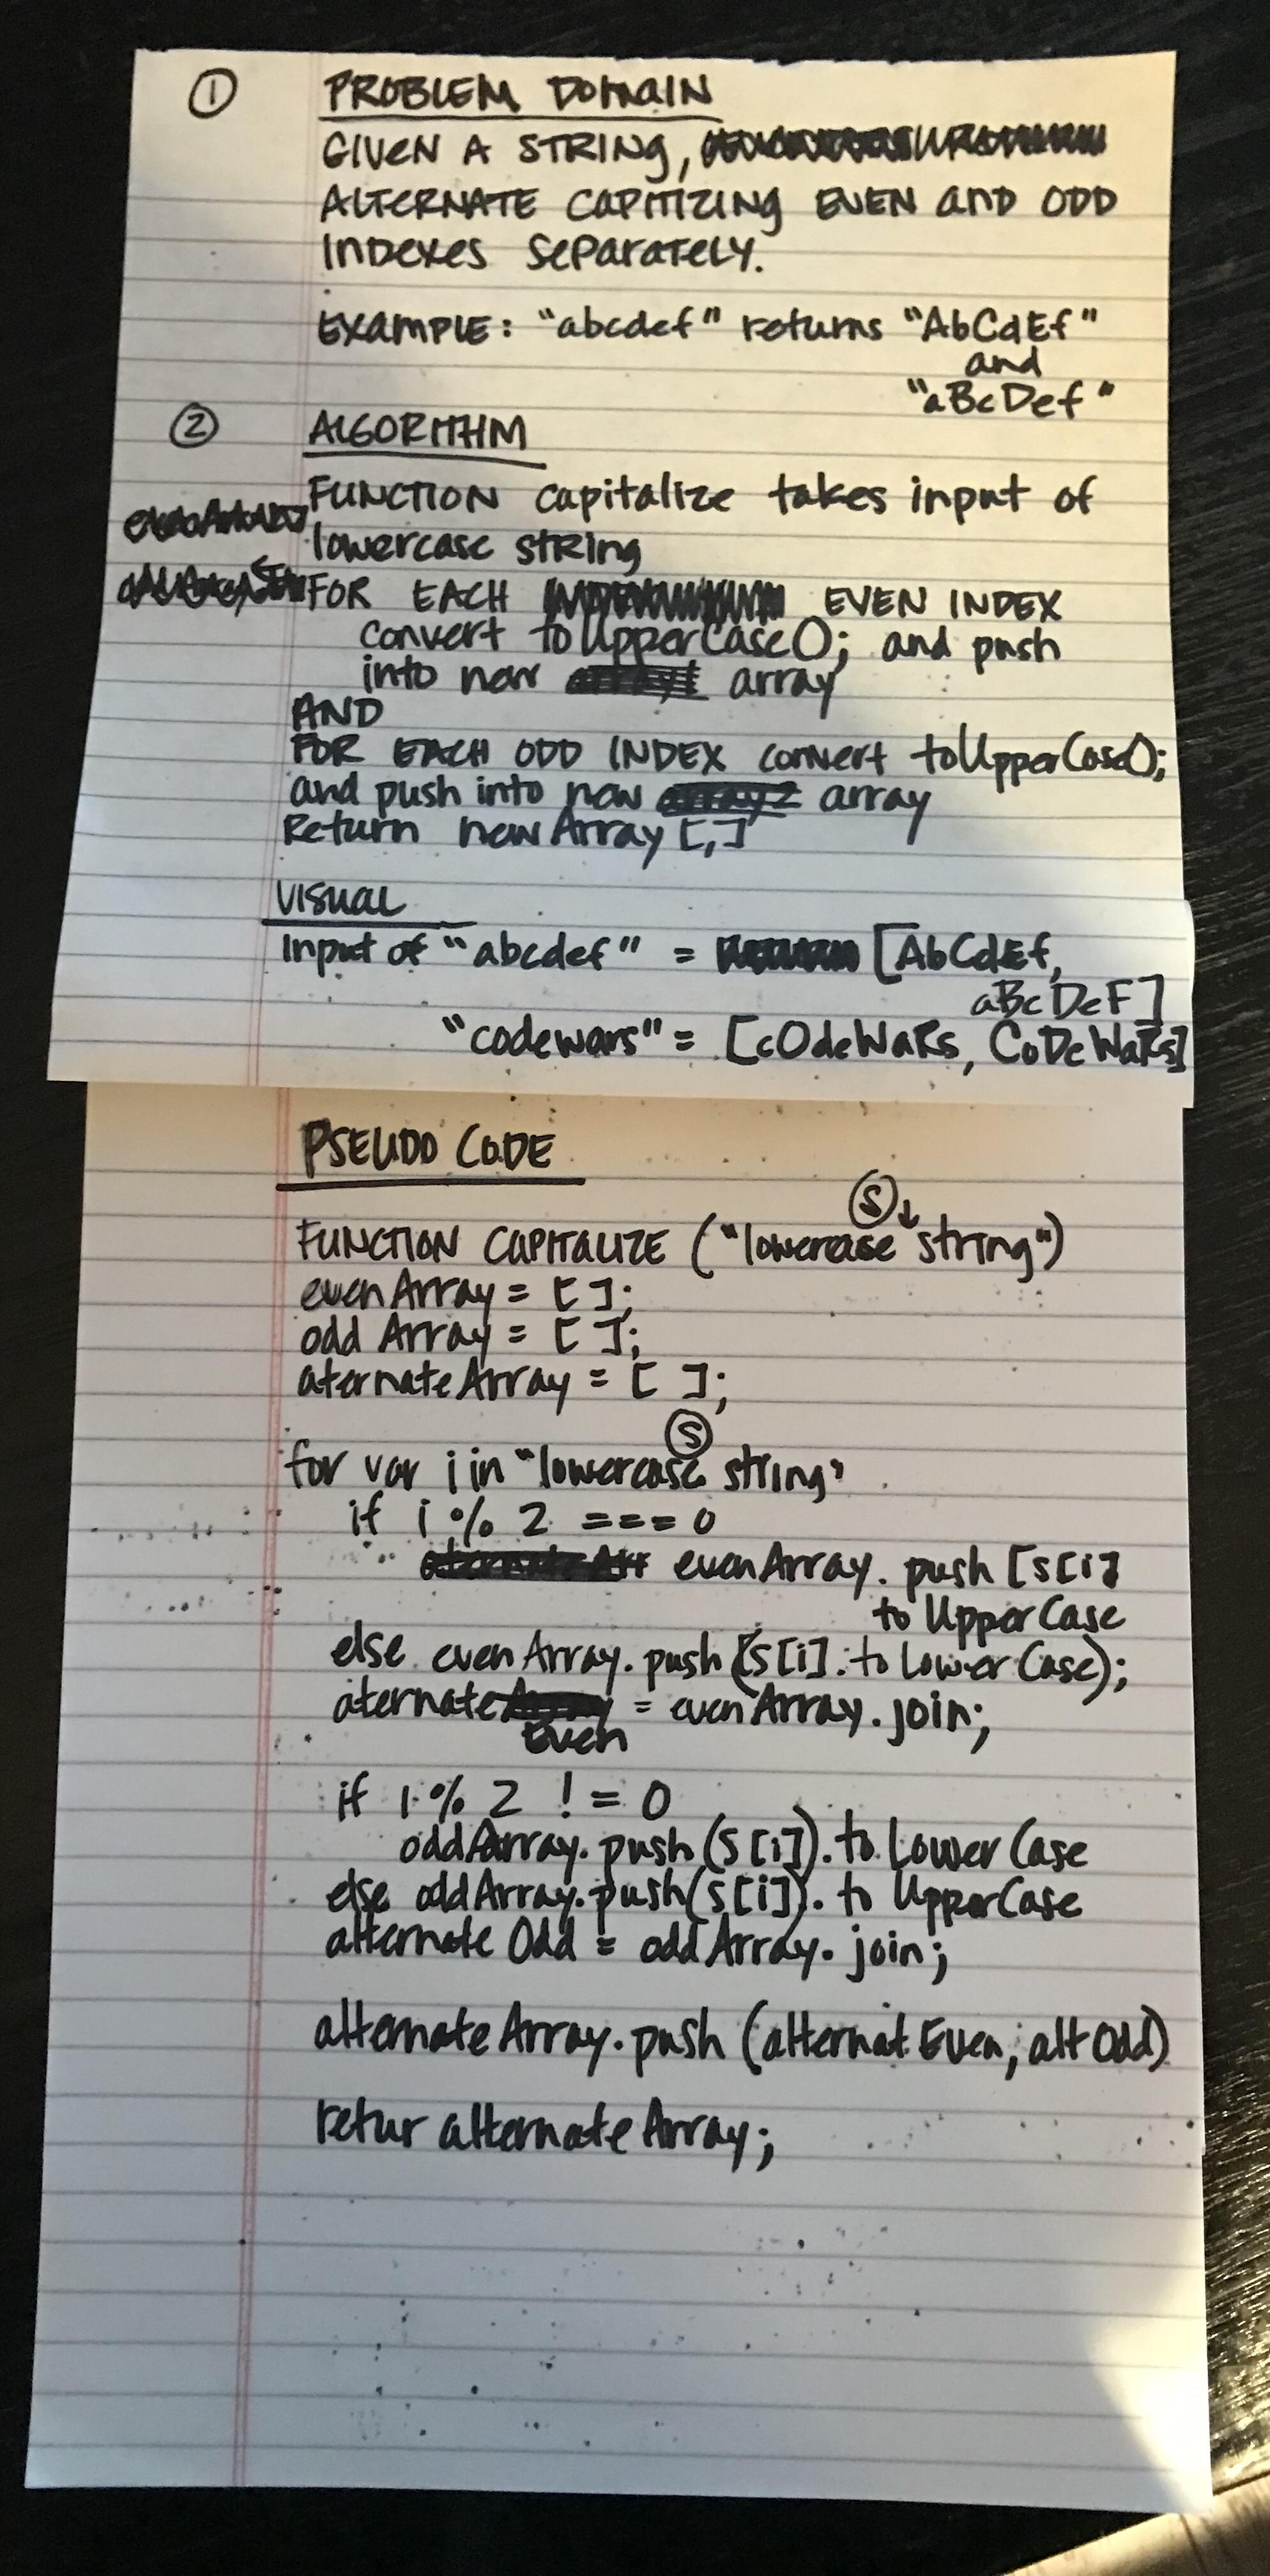 ① PROBLEM DOMAIN
GIVEN A STRING,
ALTERNATE CAPITIZING EVEN and ODD
INDEXES SEPARATELY.
EXAMPLE: "abcdef" returns "AbCdEf"
and
"aBcDef"
② ALGORITHM
FUNCTION capitalize takes input of
lowercase string
FOR EACH EVEN INDEX
convert toUpperCase(); and push
into new array
AND
FOR EACH ODD INDEX convert toUpperCase();
and push into new array
Return newArray [,]
VISUAL
Input of "abcdef" = [AbCdEf,
aBcDeF]
"codewars" = [cOdeWaRs, CoDeWaRs]
PSEUDO CODE
Ⓢ↓
FUNCTION CAPITALIZE ("lowercase string")
evenArray = [ ];
odd Array = [ ];
aternateArray = [ ];
Ⓢ
for var i in "lowercase string"
if i % 2 === 0
evenArray. push [s[i]
to UpperCase
else evenArray. push (s[i]. to LowerCase);
aternate = evenArray. join;
Even
if i % 2 != 0
oddArray. push (s[i]). to LowerCase
else oddArray. push(s[i]). to UpperCase
alternate Odd = oddArray. join;
alternate Array. push (alternat Even, alt Odd)
retur alternate Array;